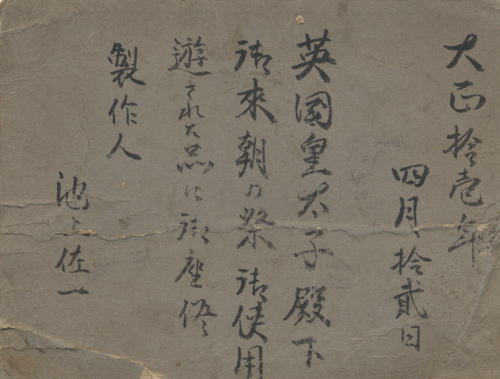 大正拾壱年
四月拾貳日
英國皇太子殿下
御來朝の祭御使用
遊された品に御座候
製作人
池上佐一